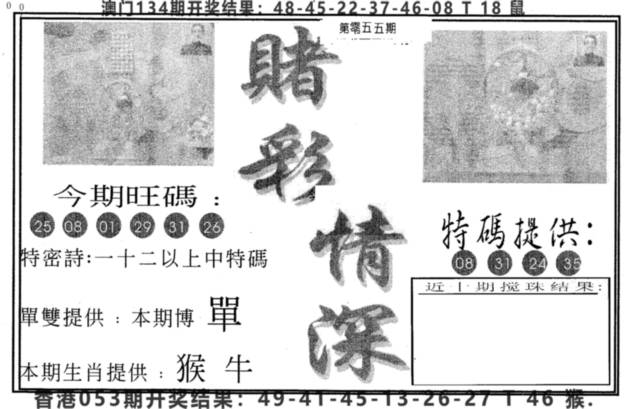 澳门134期开奖结果：48-45-22-37-46-08 T 18 鼠
第零五五期
賭彩情深
今期旺碼：
25 08 01 29 31 26
特密詩：一十二以上中特碼
單雙提供：本期博 單
本期生肖提供：猴 牛
特碼提供：
08 31 24 35
近十期搅珠結果：
香港053期开奖结果：49-41-45-13-26-27 T 46 猴.